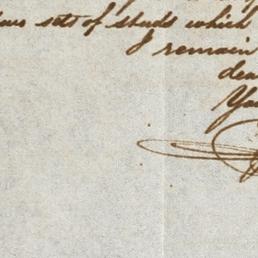 sets of studs which
I remain
dear